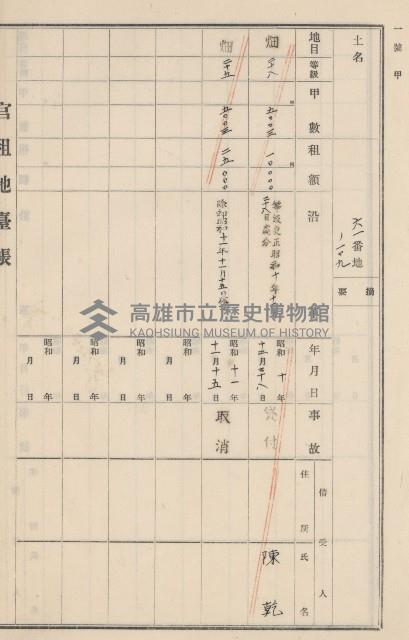 一號甲
土名
六一番地
ノ一〇九
摘要
地目 等級 甲數 租額 沿革 年月日 事故 借受人 住所 氏名
畑 二八 五〇〇三 一〇〇〇〇
昭和十年十二月二十八日
貸付
陳乾
畑 二五 五〇〇三 二五〇〇〇
除却昭和十一年十一月十五日
昭和十一年十一月十五日
取消
昭和 年 月 日
昭和 年 月 日
昭和 年 月 日
昭和 年 月 日
官租地臺帳
高雄市立歷史博物館
KAOHSIUNG MUSEUM OF HISTORY